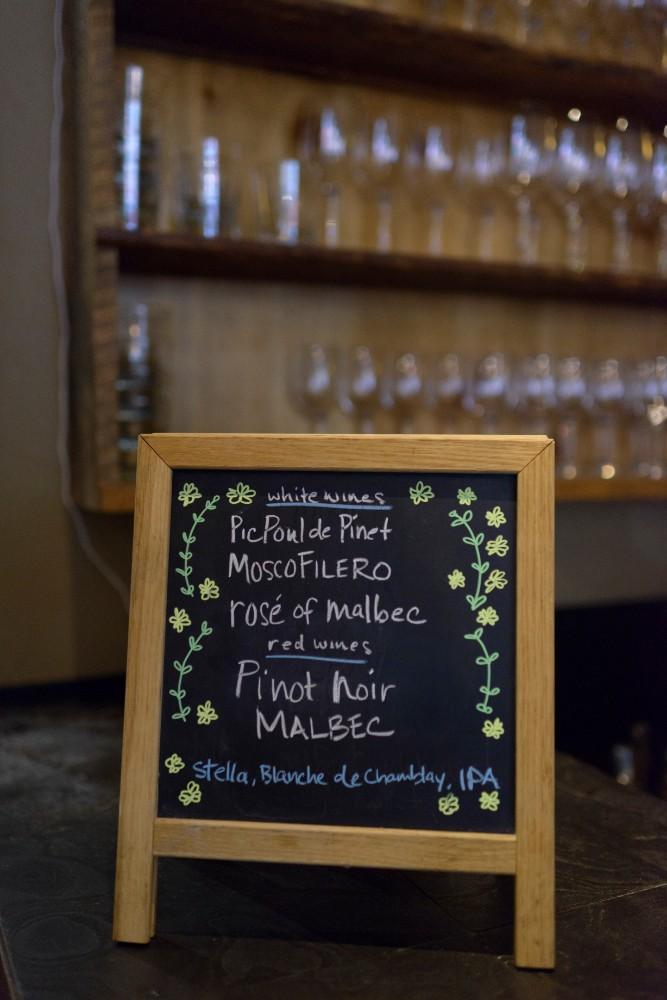 white wines
PicPoul de Pinet
MoscoFILERO
rosé of malbec
red wines
Pinot Noir
MALBEC
Stella, Blanche de Chambday, IPA